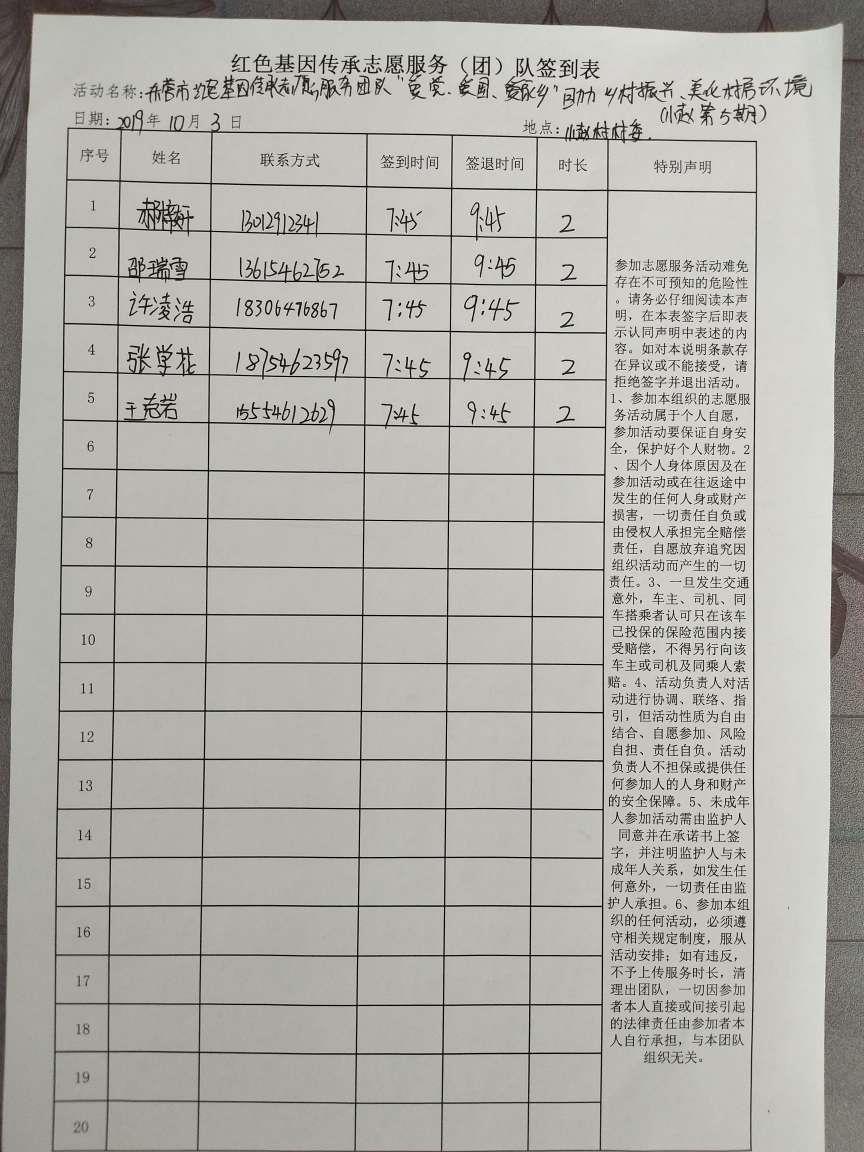 红色基因传承志愿服务（团）队签到表
活动名称：东营市红色基因传承志愿服务团队"爱党、爱国、爱家乡"助力乡村振兴、美化村居环境
（小赵第5期）
日期：2019年10月3日 地点：小赵村村委.
序号 姓名 联系方式 签到时间 签退时间 时长 特别声明
1 7:45 9:45 2
2 邵瑞雪 13615462752 7:45 9:45 2
3 许凌浩 18306476867 7:45 9:45 2
4 张学花 18754623597 7:45 9:45 2
5 15554612629 7:45 9:45 2
6
7
8
9
10
11
12
13
14
15
16
17
18
19
20
参加志愿服务活动难免
存在不可预知的危险性
。请务必仔细阅读本声
明，在本表签字后即表
示认同声明中表述的内
容。如对本说明条款存
在异议或不能接受，请
拒绝签字并退出活动。
1、参加本组织的志愿服
务活动属于个人自愿，
参加活动要保证自身安
全，保护好个人财物。2
、因个人身体原因及在
参加活动或在往返途中
发生的任何人身或财产
损害，一切责任自负或
由侵权人承担完全赔偿
责任，自愿放弃追究因
组织活动而产生的一切
责任。3、一旦发生交通
意外，车主、司机、同
车搭乘者认可只在该车
已投保的保险范围内接
受赔偿，不得另行向该
车主或司机及同乘人索
赔。4、活动负责人对活
动进行协调、联络、指
引，但活动性质为自由
结合、自愿参加、风险
自担、责任自负。活动
负责人不担保或提供任
何参加人的人身和财产
的安全保障。5、未成年
人参加活动需由监护人
同意并在承诺书上签
字，并注明监护人与未
成年人关系，如发生任
何意外，一切责任由监
护人承担。6、参加本组
织的任何活动，必须遵
守相关规定制度，服从
活动安排；如有违反，
不予上传服务时长，清
理出团队，一切因参加
者本人直接或间接引起
的法律责任由参加者本
人自行承担，与本团队
组织无关。